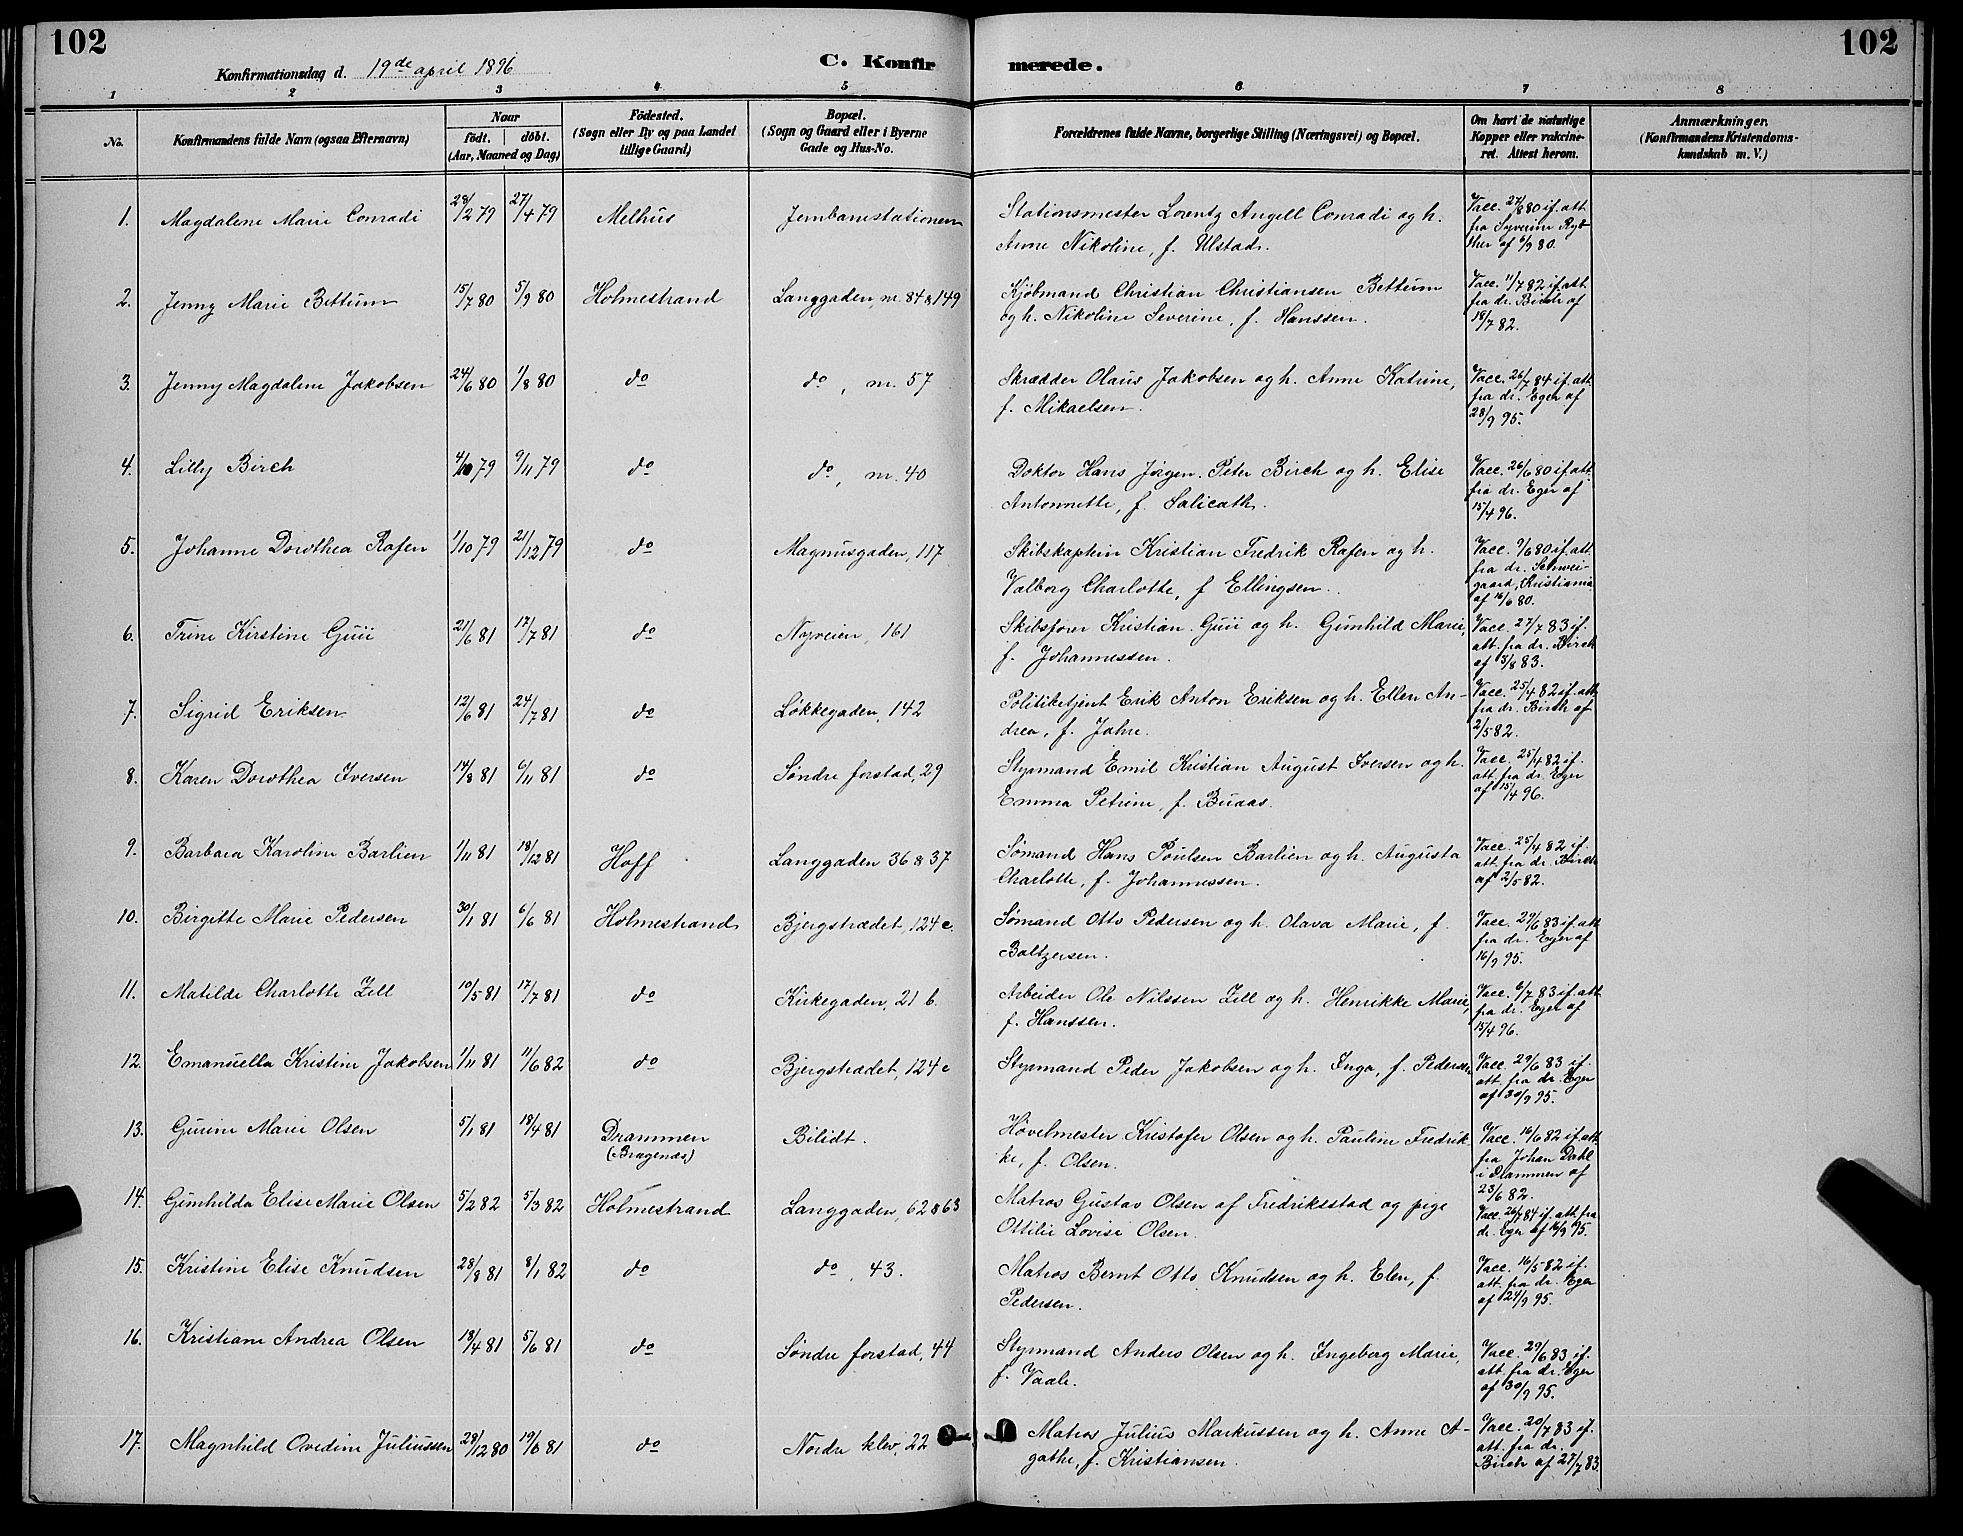 102
102
Konfirmationsdag d. 19de april 1896
C. Konfirmerede.
1 2 3 4 5 6 7 8
No.
Konfirmandens fulde Navn (ogsaa Efternavn)
Naar
født. døbt.
(Aar, Maaned og Dag)
Födested.
(Sogn eller By og paa Landet
tillige Gaard)
Bopæl.
(Sogn og Gaard eller i Byerne
Gade og Hus-No.
Forældrenes fulde Navne, borgerlige Stilling (Næringsvei) og Bopæl.
Om havt de naturlige
Kopper eller vakcine-
ret. Attest herom.
Anmærkninger.
(Konfirmandens Kristendoms-
kundskab m. V.)
1. Magdalene Marie Conradi 28/2 79 27/4 79 Melhus Jernbanestationen
Stationsmester Lorentz Angell Conradi og h.
Anne Nikoline, f. Ulstad.
Vacc. 27/8 80 if. att.
fra Syverine
af 6/9 80.
2. Jenny Marie Bettum 15/7 80 5/9 80 Holmestrand Langgaden, nr. 84 & 149
Kjøbmand Christian Christiansen Bettum
og h. Nikoline Severine, f. Hanssen.
Vacc. 11/7 82 if. att.
fra dr. Birch af
18/7 82.
3. Jenny Magdalene Jakobsen 24/6 80 1/8 80 do do, nr. 57
Skrædder Olaus Jakobsen og h. Anne Katrine,
f. Mikaelsen.
Vacc. 26/7 84 if. att.
fra dr. Eger af
28/9 95.
4. Lilly Birch 4/10 79 9/11 79 do do, nr. 40
Doktor Hans Jørgen Peter Birch og h. Elise
Antonnette, f. Salicath.
Vacc. 26/6 80 if. att.
fra dr. Eger af
15/4 96.
5. Johanne Dorothea Rafen 1/10 79 21/12 79 do Magnusgaden, 117
Skibskaptein Kristian Fredrik Rafen og h.
Valborg Charlotte, f. Ellingsen.
Vacc. 9/6 80 if. att.
fra dr. Schwei-
gaard, Kristiania
af 16/6 80.
6. Trine Kirstine Guii 21/6 81 17/7 81 do Nyveien, 161
Skibsfører Kristian Guii og h. Gunhild Marie,
f. Johannessen.
Vacc. 27/7 83 if.
att. fra dr. Birch
af 3/8 83.
7. Sigrid Eriksen 12/6 81 24/7 81 do Løkkegaden, 142
Politibetjent Erik Anton Eriksen og h. Ellen An-
drea, f. Jahre.
Vacc. 25/4 82 if. att.
fra dr. Birch af
2/5 82.
8. Karen Dorothea Iversen 14/8 81 6/11 81 do Søndre forstad, 29
Styrmand Emil Kristian August Iversen og h.
Emma Petrine, f. Buaas.
Vacc. 25/4 82 if.
att. fra dr. Eger
af 15/4 96.
9. Barbara Karoline Barlien 1/11 81 18/12 81 Hoff Langgaden 36 & 37
Sømand Hans Poulsen Barlien og h. Augusta
Charlotte, f. Johannessen.
Vacc. 25/4 82 if.
att. fra dr. Birch
af 2/5 82.
10. Birgitte Marie Pedersen 30/1 81 6/6 81 Holmestrand Bjergstrædet, 124 c.
Sømand Otto Pedersen og h. Olava Marie, f.
Baltzersen.
Vacc. 29/6 83 if. att.
fra dr. Eger af
16/9 95.
11. Matilde Charlotte Zell 10/5 81 17/7 81 do Kirkegaden, 21 b.
Arbeider Ole Nilssen Zell og h. Henrikke Marie,
f. Hanssen.
Vacc. 6/7 83 if. att.
fra dr. Eger af
15/4 96.
12. Emanuella Kristine Jakobsen 1/11 81 11/6 82 do Bjergstrædet, 124 c
Styrmand Peder Jakobsen og h. Inga, f. Pedersen
Vacc. 29/6 83 if.
att. fra dr. Eger
af 30/9 95.
13. Gurine Marie Olsen 5/1 81 18/4 81 Drammen
(Bragenæs)
Bilidt.
Høvelmester Kristofer Olsen og h. Pauline Fredrik
ke, f. Olsen.
Vacc. 16/6 82 if. att.
fra Johan Dahl
i Drammen af
23/6 82.
14. Gunhilda Elise Marie Olsen 5/2 82 5/3 82 Holmestrand Langgaden, 62 & 63
Matros Gustav Olsen af Fredriksstad og pige
Ottilie Lovise Olsen.
Vacc. 26/7 84 if. att. fra
dr. Eger af 16/9 95.
15. Kristine Elise Knudsen 28/8 81 8/1 82 do do, 43.
Matros Bernt Otto Knudsen og h. Elen, f.
Pedersen.
Vacc. 16/5 82 if.
att. fra dr. Eger
af 24/9 95.
16. Kristiane Andrea Olsen 18/4 81 5/6 81 do Søndre forstad, 44
Styrmand Anders Olsen og h. Ingeborg Marie,
f. Vaale.
Vacc. 29/6 83 if.
att. fra dr. Eger
af 30/9 95.
17. Magnhild Ovedine Juliussen 28/12 80 19/6 81 do Nordre klev 22
Matros Julius Markussen og h. Anne A-
gathe, f. Kristiansen.
Vacc. 20/7 83 if.
att. fra dr.
Birch af 27/7 83.